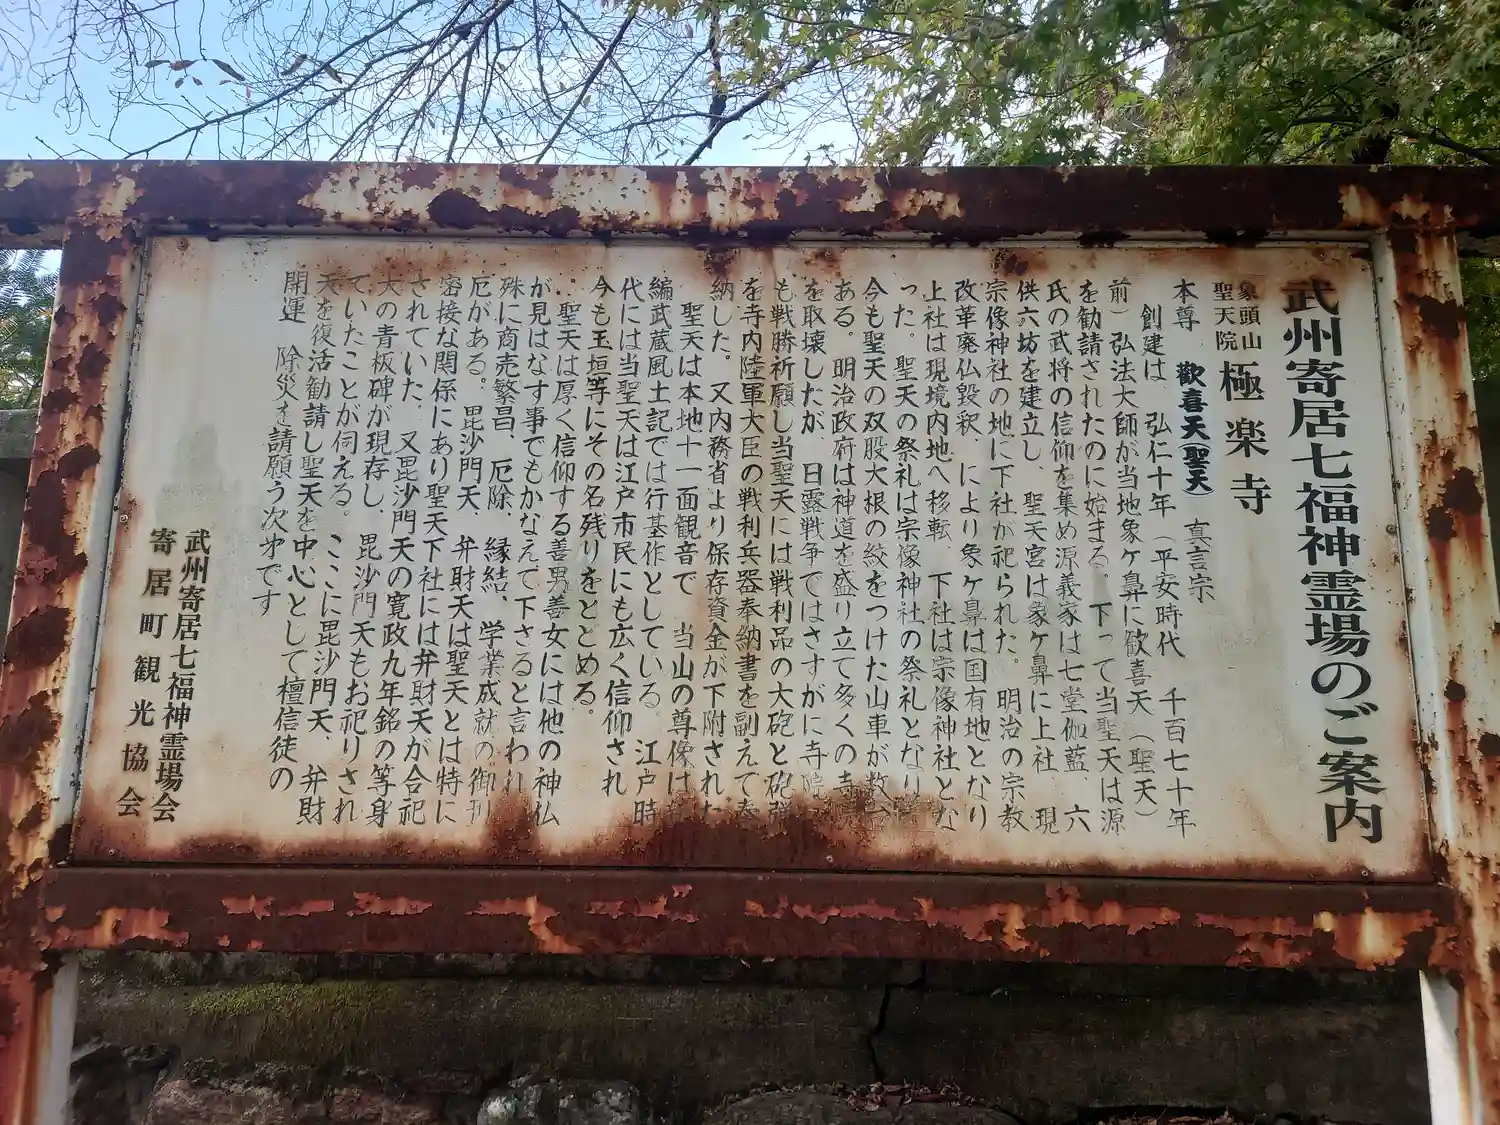 武州寄居七福神霊場のご案内
象頭山
聖天院
極楽寺
本尊 歓喜天(聖天) 真言宗
創建は 弘仁十年(平安時代 千百七十年
前)弘法大師が当地象ヶ鼻に歓喜天(聖天)
を勧請されたのに始まる。下って当聖天は源
氏の武将の信仰を集め源義家は七堂伽藍、六
供六坊を建立し、聖天宮は象ヶ鼻に上社、現
宗像神社の地に下社が祀られた。明治の宗教
改革廃仏毀釈、により象ヶ鼻は国有地となり
上社は現境内地へ移転、下社は宗像神社とな
った。聖天の祭礼は宗像神社の祭礼となり
今も聖天の双股大根の紋をつけた山車が数台
ある。明治政府は神道を盛り立て多くの寺院
を取壊したが、日露戦争ではさすがに寺院
も戦勝祈願し当聖天には戦利品の大砲と砲弾
を寺内陸軍大臣の戦利兵器奉納書を副えて奉
納した。又内務省より保存資金が下附された
聖天は本地十一面観音で 当山の尊像は
編武蔵風土記では行基作としている。江戸時
代には当聖天は江戸市民にも広く信仰され
今も玉垣等にその名残りをとどめる。
聖天は厚く信仰する善男善女には他の神仏
が見はなす事でもかなえて下さると言われ
殊に商売繁昌、厄除、縁結、学業成就の御利
厄がある。毘沙門天 弁財天は聖天とは特に
密接な関係にあり聖天下社には弁財天が合祀
されていた。又毘沙門天の寛政九年銘の等身
大の青板碑が現存し、毘沙門天もお祀りされ
ていたことが伺える。ここに毘沙門天、弁財
天を復活勧請し聖天を中心として檀信徒の
開運 除災を請願う次第です
武州寄居七福神霊場会
寄居町観光協会